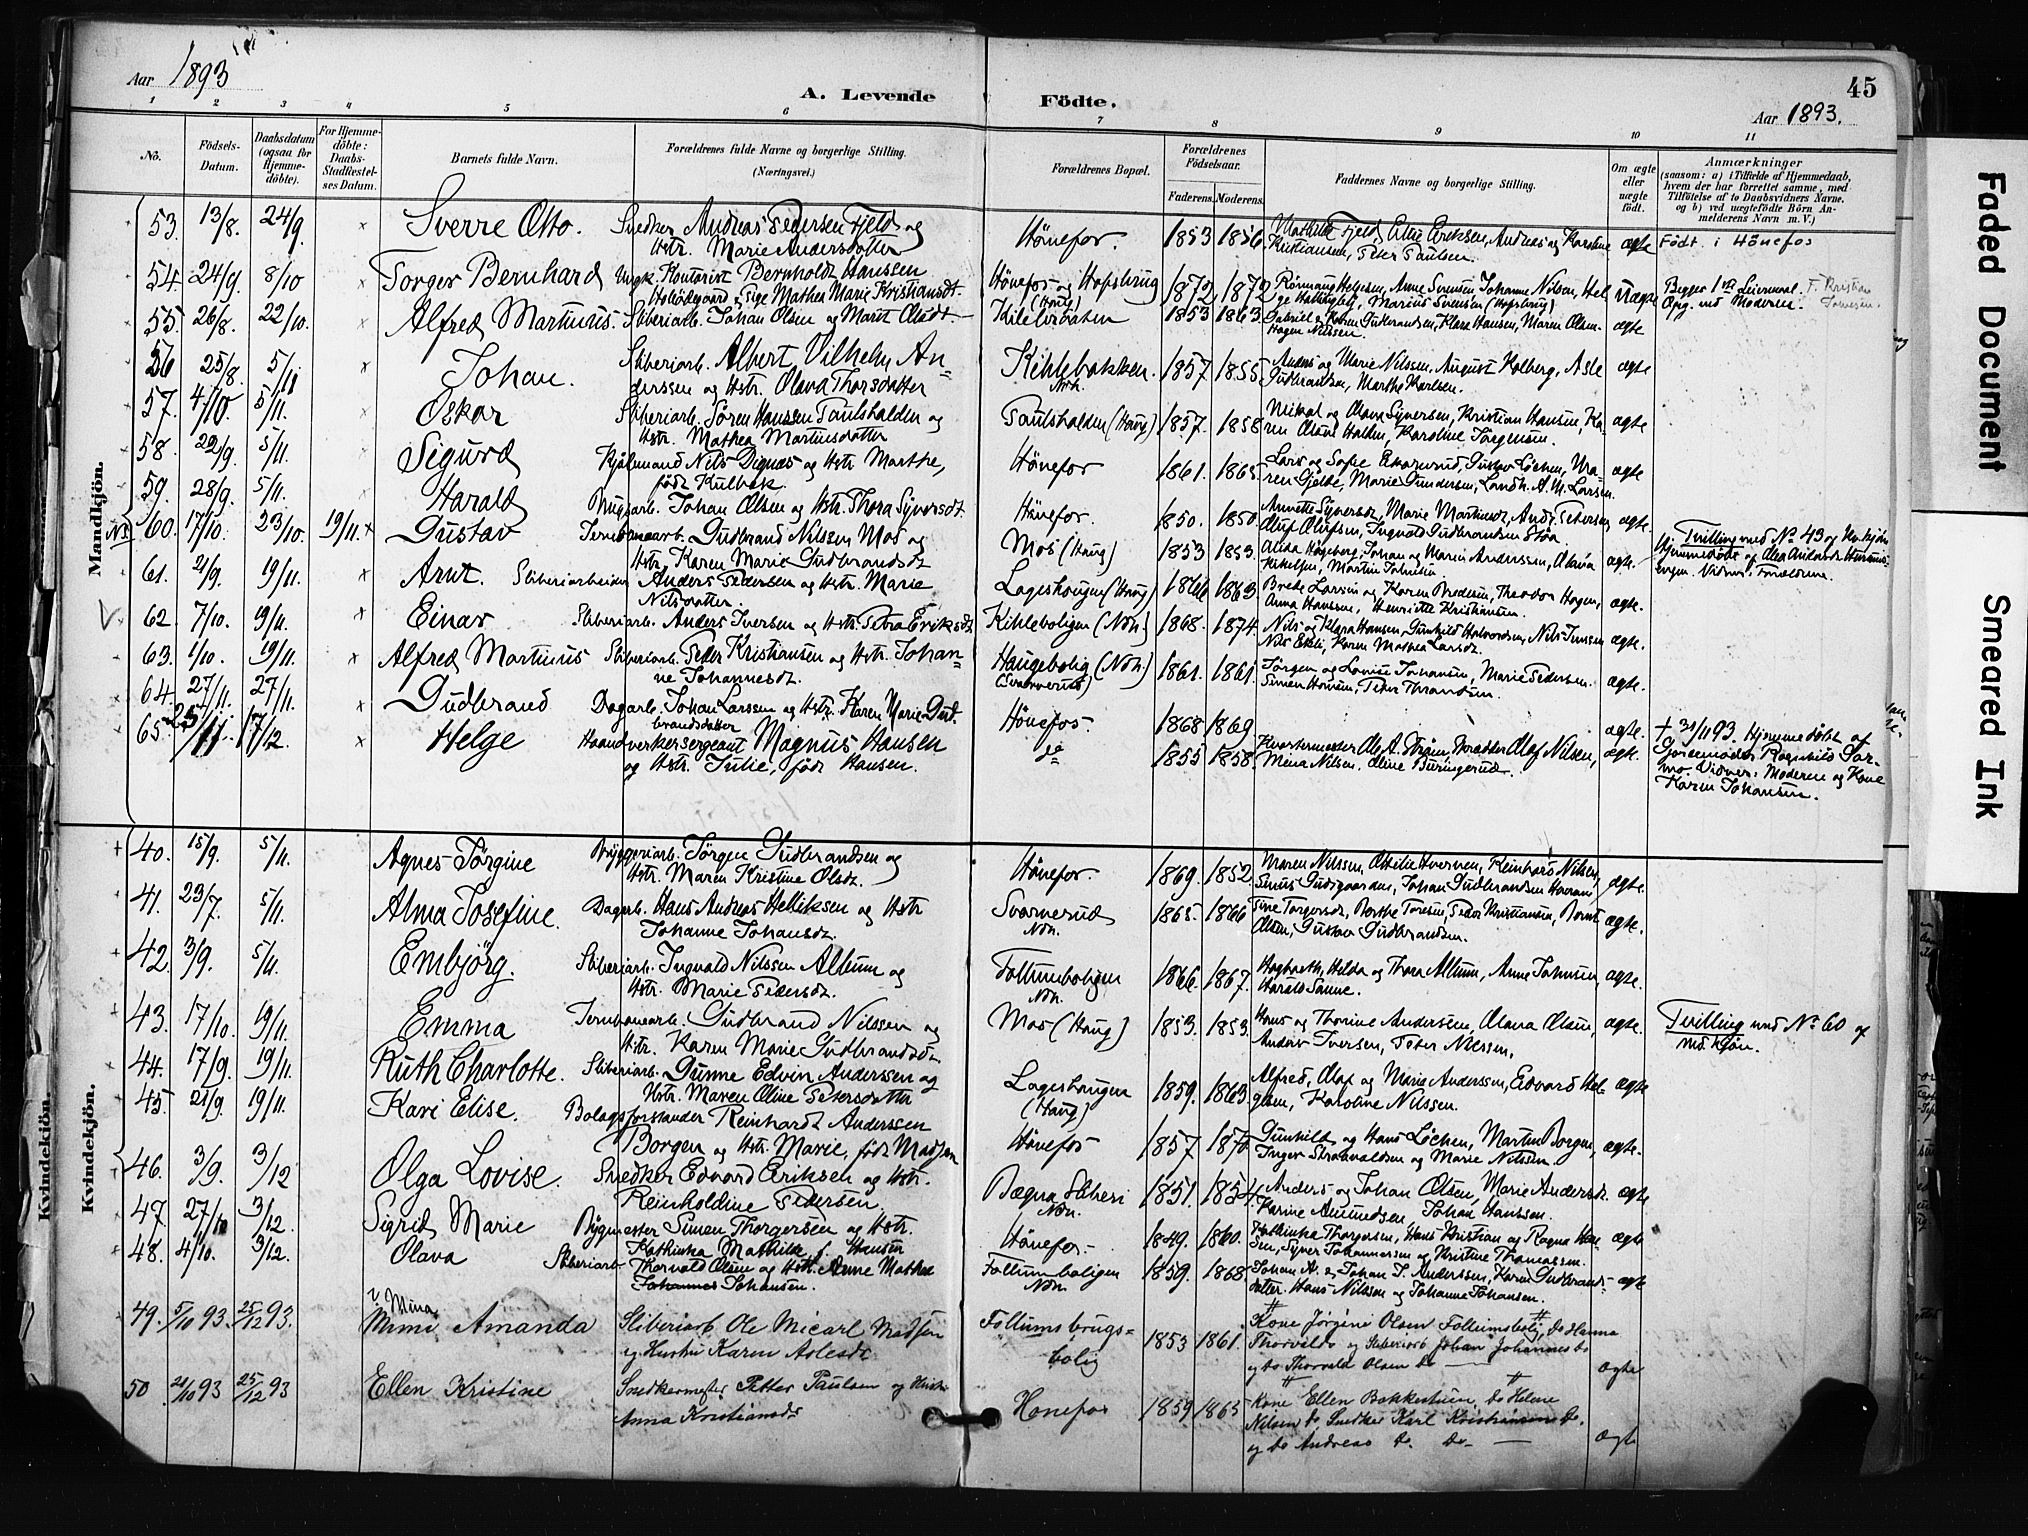 Aar 1893
A. Levende Födte.
45
Aar 1893.
1 2 3 4 5 6 7 8 9 10 11
No.
Födsels-Datum.
Daabsdatum (ogsaa for Hjemme-döbte).
For Hjemme-döbte: Daabs-Stadfæstel-ses Datum.
Barnets fulde Navn.
Forældrenes fulde Navne og borgerlige Stilling. (Næringsvei.)
Forældrenes Bopæl.
Forældrenes Födselsaar.
Faderens. Moderens.
Faddernes Navne og borgerlige Stilling.
Om ægte eller uægte födt.
Anmærkninger (saasom: a) i Tilfælde af Hjemmedaab, hvem der har forrettet samme, med Tilföielse af to Daabsvidners Navne. og b) ved uægtefödte Börn An-melderens Navn m. V.)
Mandkjön.
53. 13/8. 24/9. Sverre Otto. Snedker Andreas Pedersen Fjeld og Hstr. Marie Andersdatter Hönefos. 1853 1856 Fjeld, Andreas og Karoline Kristiansen, Peter Paulsen. ægte Födt i Hönefos
54. 24/9. 8/10 Torger Bernhard Ungk. Kontorist Bernholdt Hanssen og Pige Mathea Marie Kristiansdt. Hönefos og Hofsbrug (Haug) 1872 1872 Helgesen, Anne Svensen, Johanne Nilsen, Marius Svensen (Hofsbrug) Uægte Begges 1ste Leiermaal. Opg. ved Moderen.
55. 26/8. 22/10. Alfred Martinius. Sliberiarb. Johan Olsen og Marit Olsdt. 1853 1863. Gabriel & Karen Gulbrandsen, Klara Hansen, Maren Olsen, Hagen Nilssen. ægte
56 25/8. 5/11 Johan. Sliberiarb. Albert Vilhelm An-derssen og Hstr. Olava Thorsdatter Kihlebakken. Ndh. 1857 1855 Anders og Marie Nilssen, August Kolberg, Asle Gudbrandsen, Marthe Karlsen. ægte
57. 4/10. 5/11. Oskar Sliberiarb. Sören Hanssen Paulshalden og Hstr. Mathea Martinsdatter Paulshalden (Haug) 1857. 1858 Mikal og Olava Syversen, Kristian Hansen, Ka-ren Olava Halden, Karoline Jörgensen. ægte
58. 29/9. 5/11. Sigurd Kjöbmand Nils Dignæs og Hstr. Marthe, födt Kulbæk. Hönefos 1861. 1865. Lars og Sofie Gustav Löchen, Ma-ren Gjelbe, Marie Gundersen, Landh. A. M. Larssen. ægte
59. 28/9. 5/11. Harald Brugsarb. Johan Olsen og Hstr. Thora Syversdt. Hönefos. 1850. 1850. Annette Syversdt, Marie Martinsdt, Petersen, Oluf Olufsen, Ingvald Gudbrandsen ægte.
60. 17/10. 23/10. 19/11. Gustav Jernbanearb. Gudbrand Nilssen Mos og Hstr. Karen Marie Gudbrandsdt. Mos (Haug) 1853 1853. Alida Hageberg, Johan og Maren Anderssen, Martin Johnsen ægte. Tvilling med No 43 af Kvkjön. Hjemmedöbt af Vidner: Forældrene.
61. 2/9. 19/11. Arnt. Sliberiarbeider Anders Pedersen og Hstr. Marie Nilsdatter Lageshougen (Haug) 1866 1863 Brede Larsen og Karen Bredesen, Theodor Hagen, Anna Hanssen, Henriette Kristiansen. ægte.
62. 7/10. 19/11. Einar Sliberiarb. Anders Iversen og Hstr. Petra Eriksdt Kihleboligen (Ndh.) 1868. 1874. Nils og Klara Hansen, Gunhild Halvorsdsen, Nils Jenssen, Nils Ekli, Karen Mathea Larsdt. ægte.
63. 1/10. 19/11. Alfred Martinius Sliberiarb. Peder Kristiansen og Hstr. Johan-ne Johannesdt. Haugebolig (Ndh.) (Svarverud) 1861. 1861. Jörgen og Lovise Johansen, Marie Pedersen, Simen Hansen, Peter Thrandsen. ægte.
64. 27/11. 27/11. Gudbrand Dagarb. Johan Larssen og Hstr. Karen Marie Gud-brandsdatter Hönefos. 1868 1869 ægte. † 30/11 93. Hjemmedöbt af Gjordemoder Ragnhild Vidner: Moderen og Kone Karen Johansen.
65. 25/11. 17/12. Helge Haandverkersergeant Magnus Hansen og Hstr. Julie, födt Hansen. do 1855 1858. Kvartermester Ole A. Olaf Nilsen, Mina Nilsen, Oline Buringerud. ægte.
Kvindekjön.
Kvindekjön.
40. 15/9. 5/11. Agnes Jörgine Bryggeriarb. Jörgen Gudbrandsen og Hstr. Maren Kristine Olsdt. Hönefos. 1869. 1852 Maren Nilssen, Othilie Hvervem, Reinhard Nilsen, Johan Gudbrandsen ægte.
41. 23/7. 5/11. Alma Josefine. Dagarb. Hans Andreas Helliksen og Hstr. Johanne Johansdt. Svarverud Ndh. 1865. 1866 Tine Torgersdt, Berthe Toresen, Peder Kristiansen, Bernt Olsen, Gustav Gudbrandsen. ægte.
42. 3/9. 5/11. Embjörg. Sliberiarb. Ingvald Nilssen Altum og Hstr. Marie Pedersdt. Follumboligen Ndh. 1866. 1867. Hagbarth, Helda og Thora Altum, Anne Johnsen, Harald Sanne. ægte.
43. 17/10. 19/11. Emma Jernbanearb. Gudbrand Nilssen og Hstr. Karen Marie Gudbrandsdt. Mos (Haug) 1853. 1853. Hans og Thorine Andersen, Olava Olsen, Anders Iversen, Peter Nilssen, ægte. Tvilling med No 60 af Mdkjön.
44. 17/9. 19/11. Ruth Charlotte. Sliberiarb. Gunne Edvin Anderssen og Hstr. Maren Oline Petersdatter Lageshougen (Haug) 1859. 1863. Alfred, Olaf og Marie Anderssen, Edvard Hel-gesen, Karoline Nilssen. ægte
45. 21/9. 19/11. Kari Elise. Bolagsforstander Reinhardt Anderssen Borgen og Hstr. Marie, födt Madsen Hönefos 1857 1870 Gunhild og Hans Löchen, Martin Borgen, Inger Strandvaldsen og Marie Nilssen ægte.
46. 3/9. 3/12 Olga Lovise. Snedker Edvard Eriksen og Hstr. Reinholdine Pedersen. Bægna Sliberi Ndh. 1851. 1854. Anders og Johan Olsen, Marie Andersdt. Karine Amundsen, Johan Hanssen. ægte
47. 27/10 3/12. Sigrid Marie Bygmester Simen Thorgersen og Hstr. Kathinka Mathilde f. Hansen Hönefos. 1849. 1860. Kathinka Thorgersen, Hans Kristian og Ragna Han-sen, Syver Johannessen og Kristine Thomassen. ægte
48. 4/10. 3/12. Olava Sliberiarb Thorvald Olsen og Hstr. Anne Mathea Johansen. Follumboligen Ndh. 1859. 1868. Johan A. & Johan J. Anderssen, Karen Gudbrands-datter. Hans Nilssen og Johanne Johansen. ægte
49. 5/10 93. 25/12 93. Mina Mimi Amanda Sliberiarb Ole Micael Madsen og Hustru Karen Aslesdt Follumsbrugs-bolig 1853 1861. Kone Jörgine Olsen Follumsbolig, do Hanna Thorvalds og Sliberiarb Johan Johannes do og do Thorvald Olsen do ægte
50 21/10 93 25/12 93 Ellen Kristine Snedkermester Petter Paulsen og Hustru Anna Kristiansdt Hönefos 1859 1865 Kone Ellen Bakkestuen, do Helene Nilsen do Snedker Karl Kristiansen do. og do Andreas do. do ægte
Faded Document
Smeared Ink